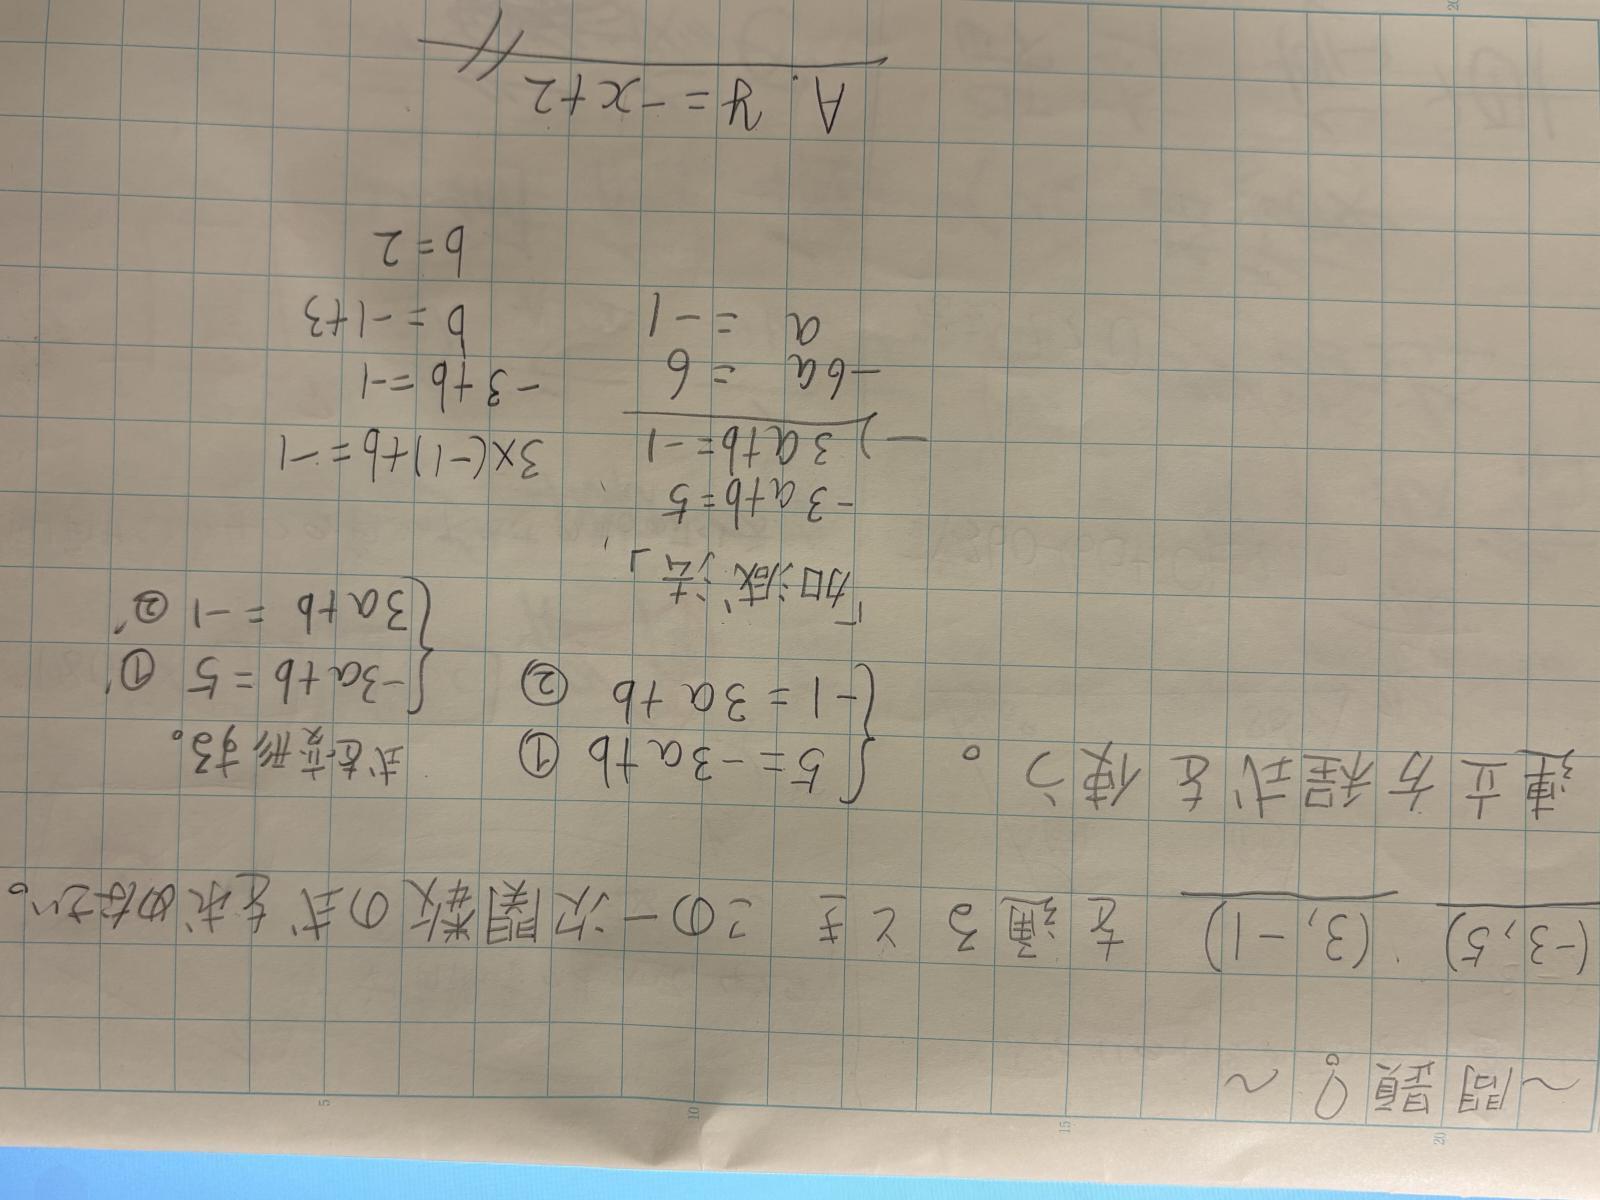 ～問題8～
(-3,5)、(3,-1)を通るとき この一次関数の式を求めなさい。
連立方程式を使う。
5=-3a+b ①
-1=3a+b ②
式を変形する。
-3a+b=5 ①'
3a+b=-1 ②'
「加減法」
-3a+b=5
-) 3a+b=-1
-6a =6
a =-1
3×(-1)+b=-1
-3+b=-1
b=-1+3
b=2
A. y=-x+2
5
10
15
20